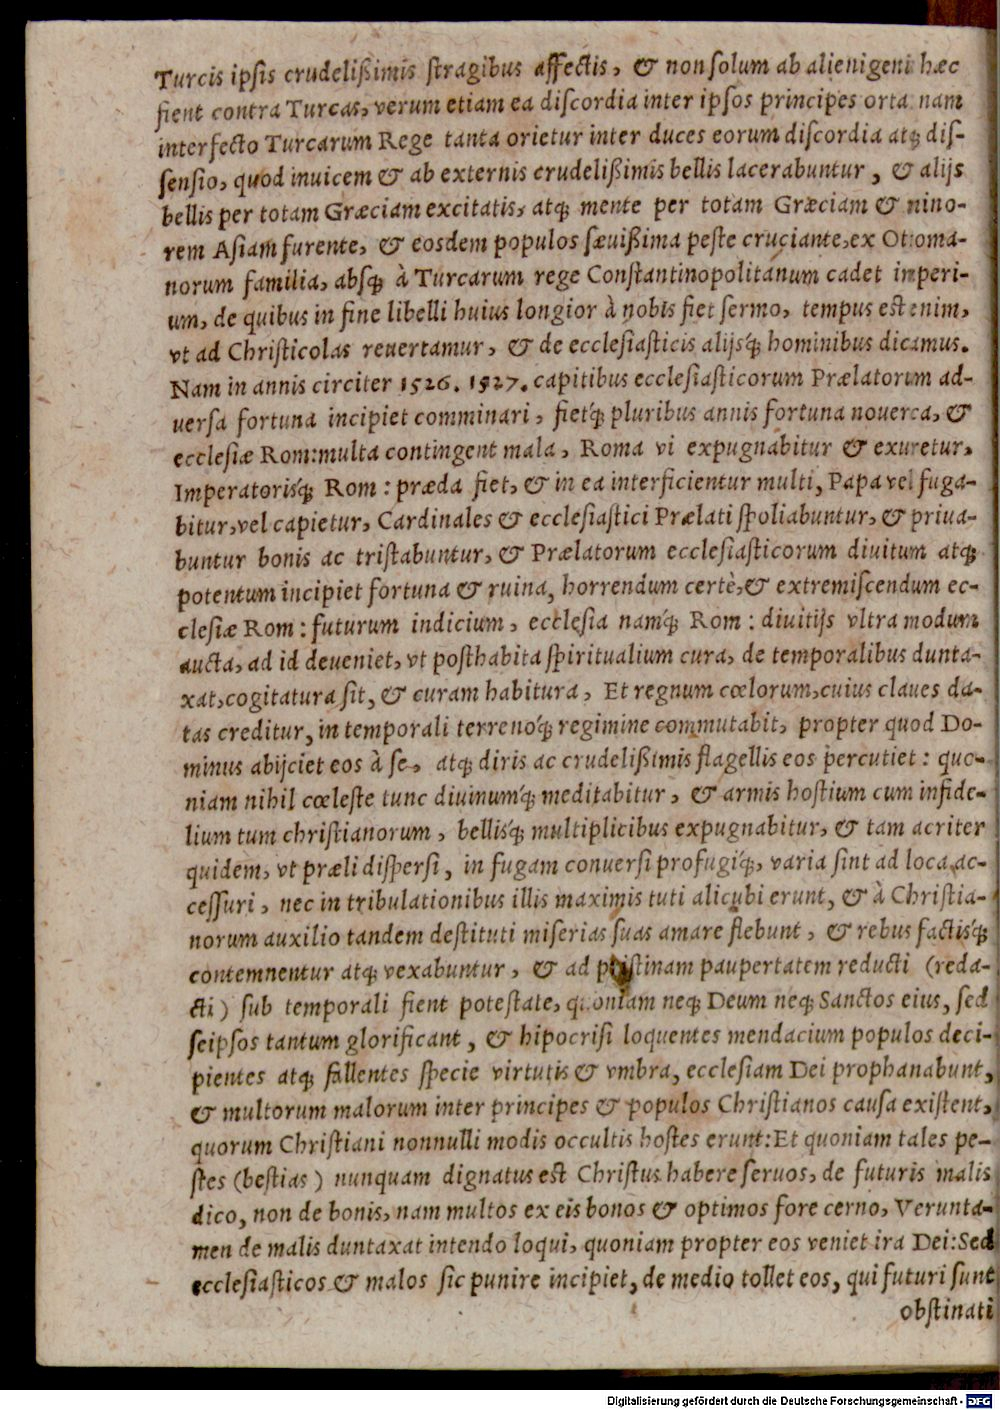 Turcis ipsis crudelißimis ſtragibus affectis, & non ſolum ab alienigenis hæc
fient contra Turcas, verum etiam ea diſcordia inter ipſos principes orta nam
interfecto Turcarum Rege tanta orietur inter duces eorum diſcordia atq; diſ-
ſenſio, quod inuicem & ab externis crudelißimis bellis lacerabuntur, & alijs
bellis per totam Græciam excitatis, atq; mente per totam Græciam & nino-
rem Aſiam furente, & eosdem populos ſæuißima peſte cruciante, ex Ottoma-
norum familia, absq; à Turcarum rege Conſtantinopolitanum cadet imperi-
um, de quibus in fine libelli huius longior à nobis fiet ſermo, tempus eſt enim,
vt ad Chriſticolas reuertamur, & de eccleſiaſticis alijsq́; hominibus dicamus.
Nam in annis circiter 1526. 1527. capitibus eccleſiaſticorum Prælatorum ad-
uerſa fortuna incipiet comminari, fietq́; pluribus annis fortuna nouerca, &
eccleſiæ Rom: multa contingent mala, Roma vi expugnabitur & exuretur,
Imperatorisq́; Rom: præda fiet, & in ea interficientur multi, Papa vel fuga-
bitur, vel capietur, Cardinales & eccleſiaſtici Prælati ſpoliabuntur, & priua-
buntur bonis ac triſtabuntur, & Prælatorum eccleſiaſticorum diuitum atq;
potentum incipiet fortuna & ruina, horrendum certè, & extremiſcendum ec-
cleſiæ Rom: futurum indicium, eccleſia namq́; Rom: diuitijs vltra modum
aucta, ad id deueniet, vt poſthabita ſpiritualium cura, de temporalibus dunta-
xat, cogitatura ſit, & curam habitura, Et regnum cœlorum, cuius claues da-
tas creditur, in temporali terrenoq́; regimine commutabit, propter quod Do-
minus abijciet eos à ſe, atq; diris ac crudelißimis flagellis eos percutiet: quo-
niam nihil cœleſte tunc diuinumq́; meditabitur, & armis hoſtium cum infide-
lium tum chriſtianorum, bellisq́; multiplicibus expugnabitur, & tam acriter
quidem, vt præli diſperſi, in fugam conuerſi profugiq́;, varia ſint ad loca ac-
ceſſuri, nec in tribulationibus illis maximis tuti alicubi erunt, & à Chriſtia-
norum auxilio tandem deſtituti miſerias ſuas amare flebunt, & rebus factisq́;
contemnentur atq; vexabuntur, & ad priſtinam paupertatem reducti (reda-
cti) ſub temporali fient poteſtate, quoniam neq; Deum neq; Sanctos eius, ſed
ſeipſos tantum glorificant, & hipocriſi loquentes mendacium populos deci-
pientes atq; fallentes ſpecie virtutis & vmbra, eccleſiam Dei prophanabunt,
& multorum malorum inter principes & populos Chriſtianos cauſa exiſtent,
quorum Chriſtiani nonnulli modis occultis hoſtes erunt: Et quoniam tales pe-
ſtes (beſtias) nunquam dignatus eſt Chriſtus habere ſeruos, de futuris malis
dico, non de bonis, nam multos ex eis bonos & optimos fore cerno, Verunta-
men de malis duntaxat intendo loqui, quoniam propter eos veniet ira Dei: Sed
eccleſiaſticos & malos ſic punire incipiet, de medio tollet eos, qui futuri ſunt
obſtinati
Digitalisierung gefördert durch die Deutsche Forschungsgemeinschaft - DFG